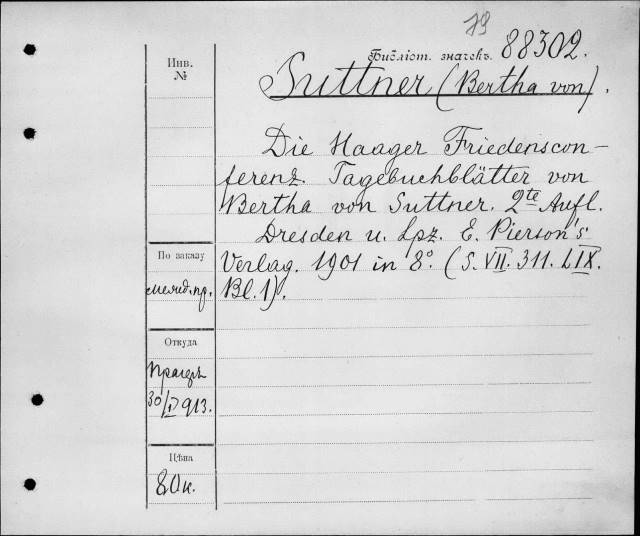 79
Библіот. значекъ. 88302.
Инв.
№
Suttner (Bertha von).
Die Haager Friedenscon-
ferenz. Tagebuchblätter von
Bertha von Suttner. 2te Aufl.
Dresden u. Lpz. E. Pierson's
Verlag. 1901 in 8°. (S. VII. 311. LIX.
Bl. 1).
По заказу
Откуда
30/I 913.
Цѣна
80к.